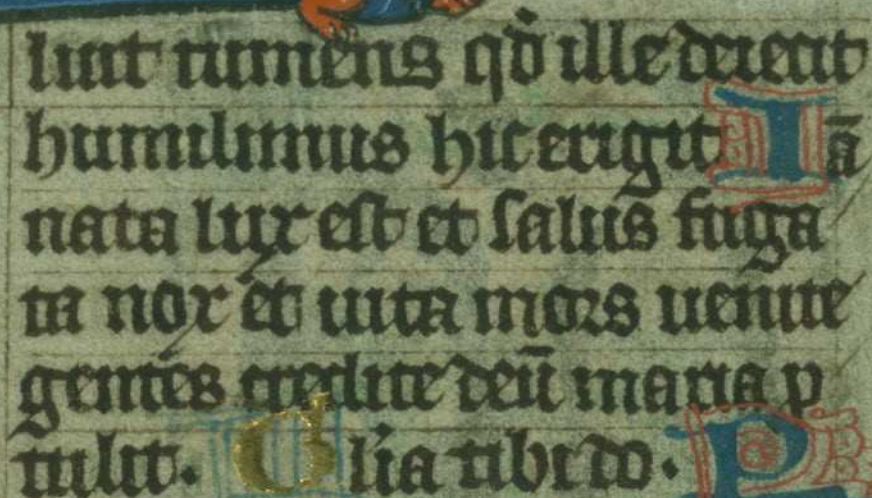 luit tumens qd̄ ille deiecit
humilimus hic erigit Iā
nata lux est et salus fuga
ta nox et uita mors uenite
gentes credite deū maria p
tulit. Glia tibi do. P